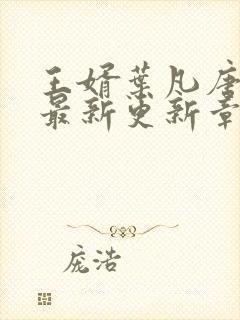 王婿叶凡唐
最新更新章
庞浩